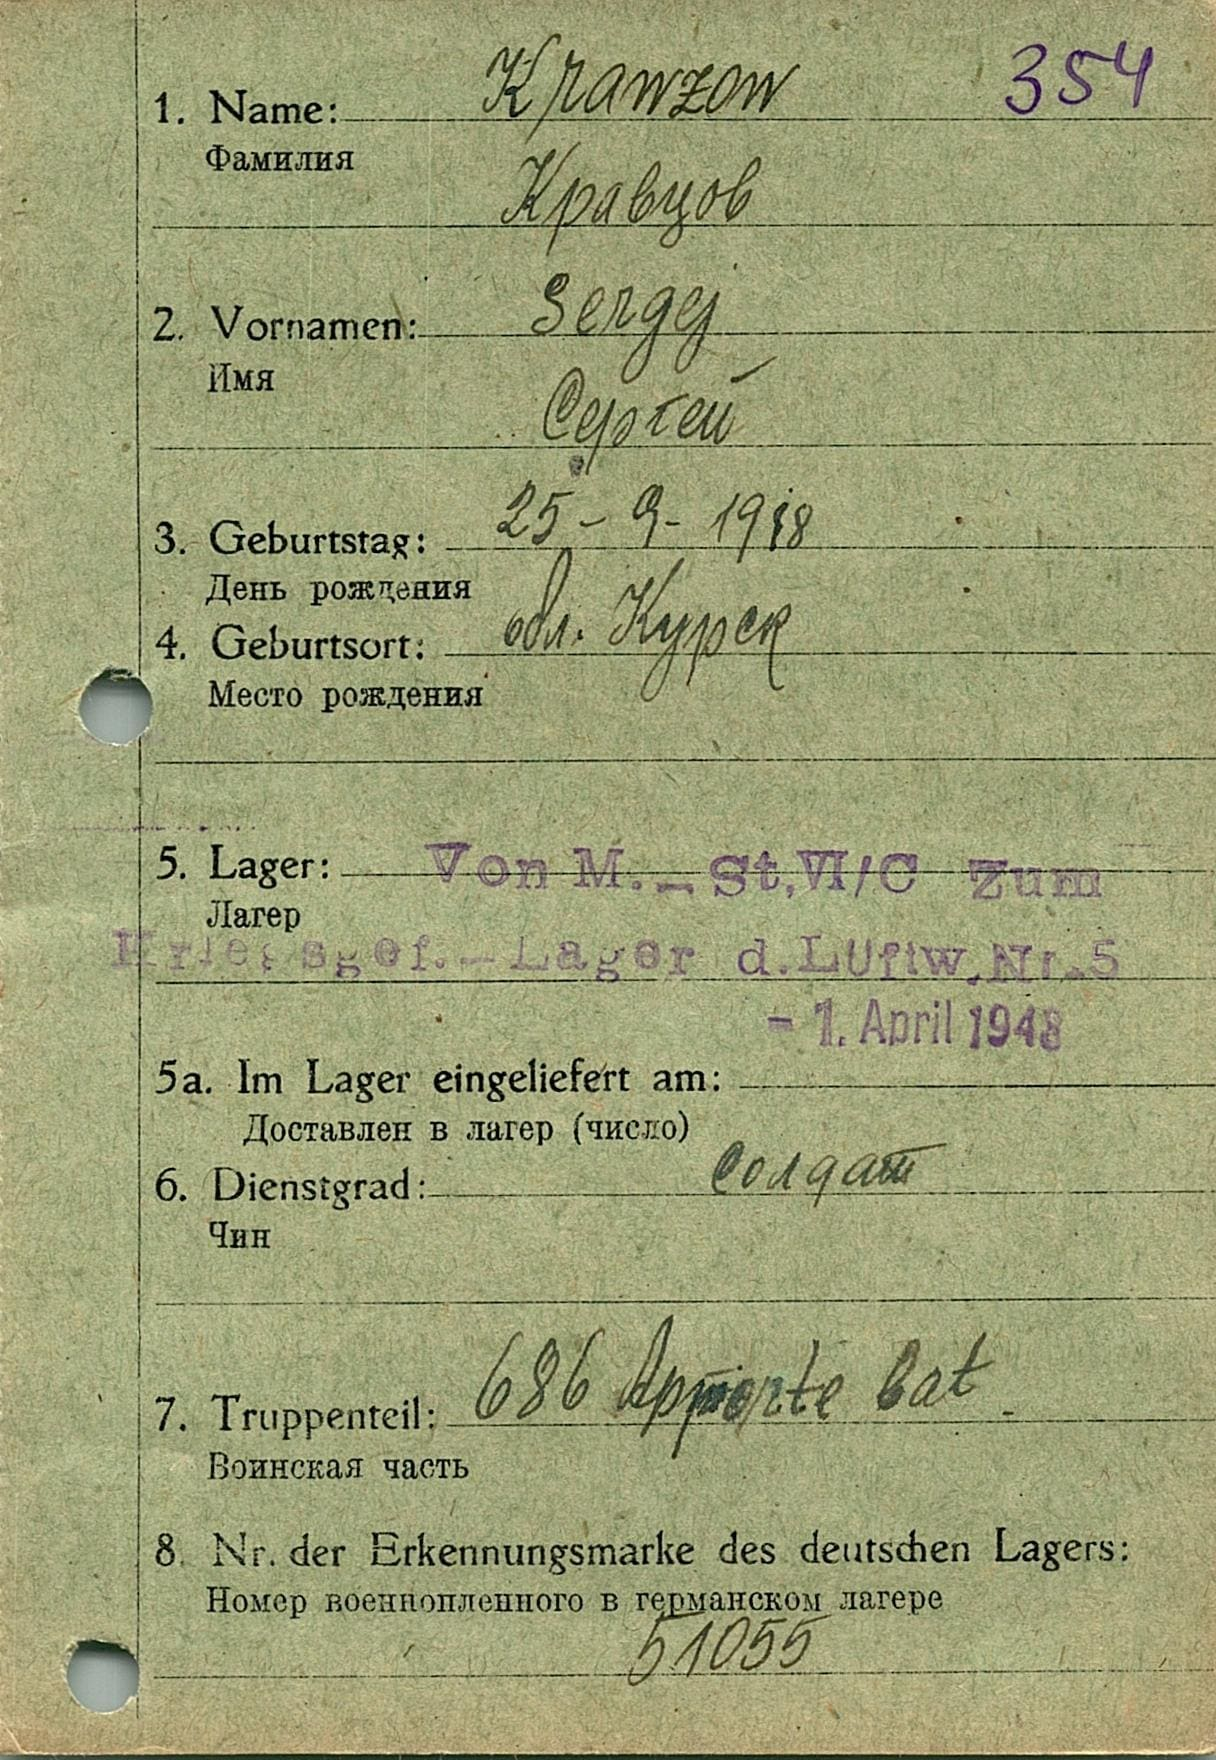 Krawzow 354
1. Name:
Фамилия
Кравцов
Sergej
2. Vornamen:
Имя
Сергей
3. Geburtstag: 25-9-1918
День рождения
4. Geburtsort: обл. Курск
Место рождения
5. Lager: Von M.-St.VI/C Zum
Лагер
Kriegsgef.-Lager d.Luftw.Nr.5
- 1. April 1943
5a. Im Lager eingeliefert am:
Доставлен в лагер (число)
6. Dienstgrad: Солдат
Чин
7. Truppenteil: 686 bat
Воинская часть
8. Nr. der Erkennungsmarke des deutschen Lagers:
Номер военнопленного в германском лагере
51055